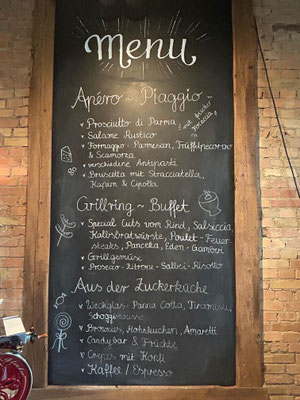 Menu
Apéro - Piaggio -
♥ Prosciutto di Parma
, mit frischer
Focaccia,
♥ Salame Rustico
♥ Formaggio - Parmesan, Trüffelpecorino
& Scamorza
♥ verschidene Antipasti
♥ Bruscetta mit Stracciatella,
Kapern & Cipolla
Grillring - Buffet
♥ Special Cuts vom Rind, Salsiccia,
Kalbsbratwürste, Poulet - Feuer-
steaks, Pancetta, Eden - Gamberi
♥ Grillgemüse
♥ Prosecco - Zitrone - Salbei - Risotto
Aus der Zuckerküche
♥ Weckglas: Panna Cotta, Tiramisu,
Schoggimousse
♥ Brownies, Mohnkuchen, Amaretti
♥ Candybar & Früchte
♥ mit Konfi
♥ Kaffee / Espresso